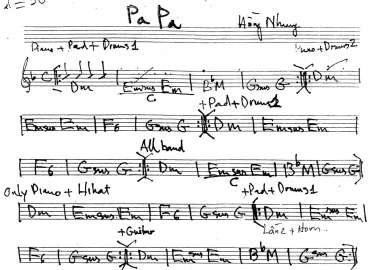 ♩ = 50
Pa Pa
Hồng Nhung
Piano + Pad + Drums 1
Piano + Drums 2
C Dm | Emsus Em | B♭M | Gsus G Dm
C
+ Pad + Drums 2
Emsus Em | F6 | Gsus G Dm | Emsus Em
All band
F6 | Gsus G Dm | Emsus Em | B♭M | Gsus G
C
Only Piano + Hihat
+ Pad + Drums 1
Dm | Emsus Em | F6 | Gsus G Dm | Emsus Em
+ Guitar
Lần 2 + Horn..
F6 | Gsus G Dm | Emsus Em | B♭M | Gsus G